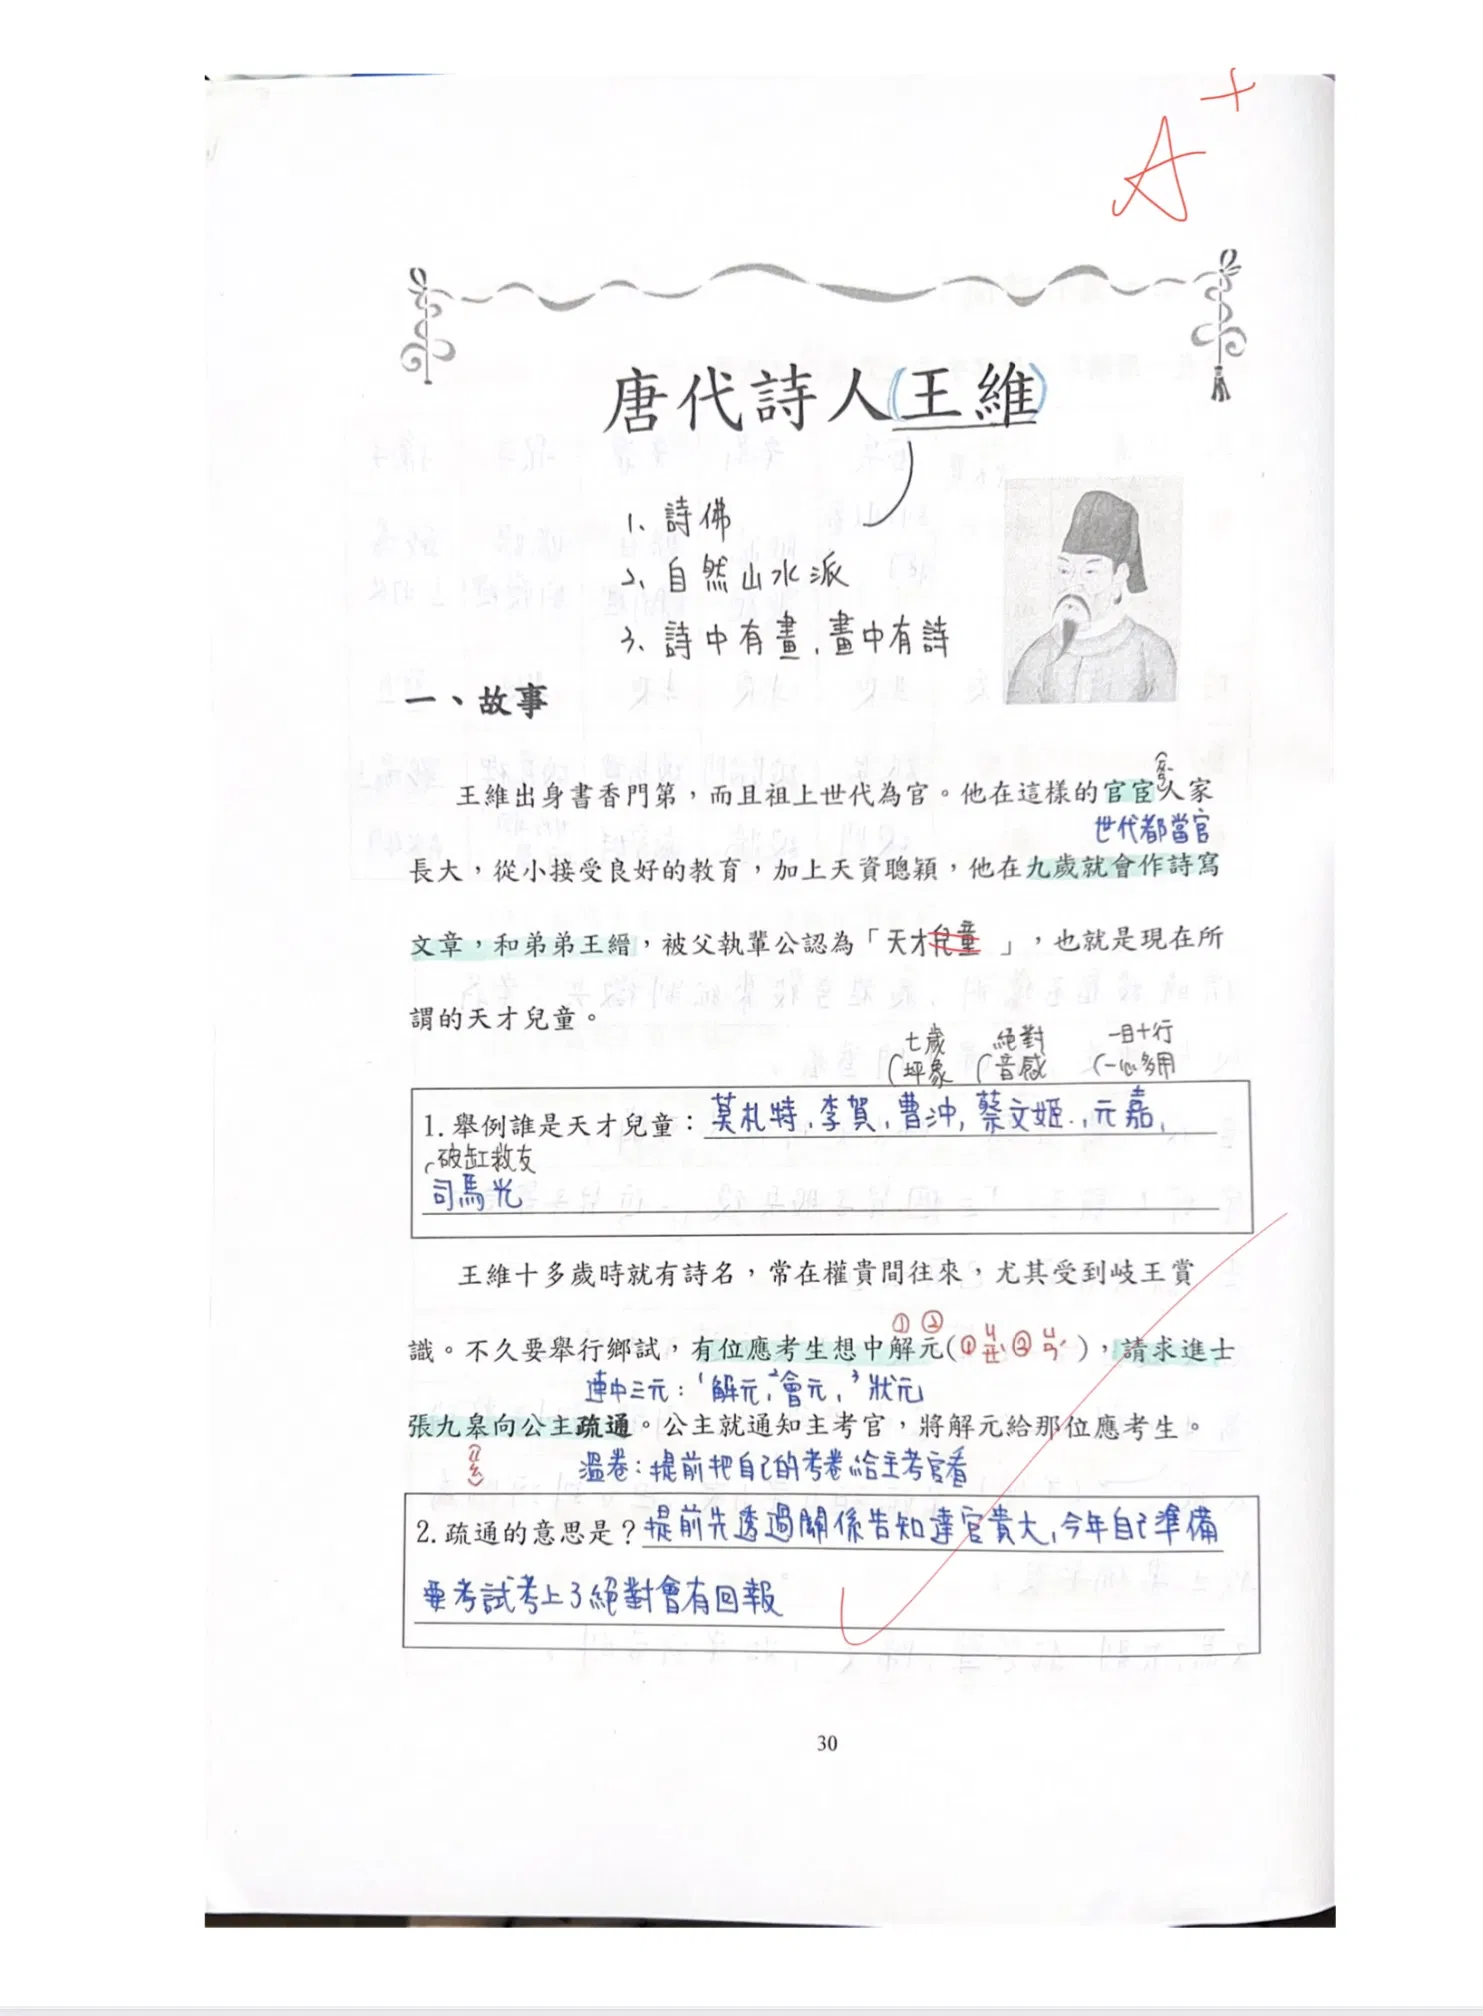 A+
唐代詩人(王維)
1、詩佛
2、自然山水派
3、詩中有畫，畫中有詩
一、故事
王維出身書香門第，而且祖上世代為官。他在這樣的官宦人家
世代都當官
長大，從小接受良好的教育，加上天資聰穎，他在九歲就會作詩寫
文章，和弟弟王縉，被父執輩公認為「天才兒童」，也就是現在所
謂的天才兒童。
七歲 絕對 一目十行
秤象 音感 一心多用
1.舉例誰是天才兒童：莫札特、李賀、曹沖、蔡文姬、元嘉、
破缸救友
司馬光
王維十多歲時就有詩名，常在權貴間往來，尤其受到岐王賞
① ②
識。不久要舉行鄉試，有位應考生想中解元(①ㄐㄧㄝˋ②ㄩㄢˊ)，請求進士
連中三元：1解元，2會元，3狀元
張九皋向公主疏通。公主就通知主考官，將解元給那位應考生。
(ㄍㄠ)
溫卷：提前把自己的考卷給主考官看
2.疏通的意思是？提前先透過關係告知達官貴人，今年自己準備
要考試考上了絕對會有回報
30